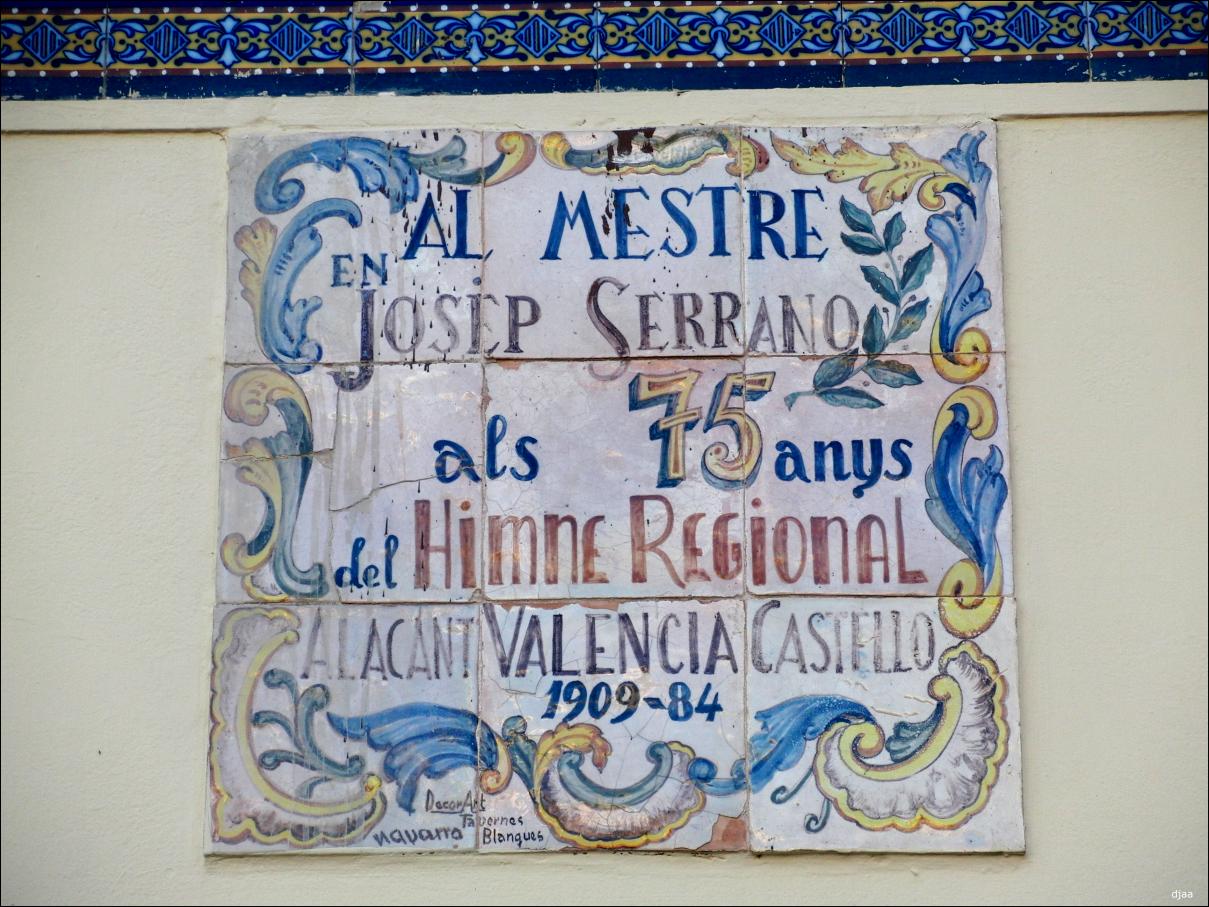 AL MESTRE
EN
JOSEP SERRANO
als 75 anys
del HIMNE REGIONAL
ALACANT VALENCIA CASTELLO
1909-84
DecorArt
Tavernes
navarro Blanques
djaa